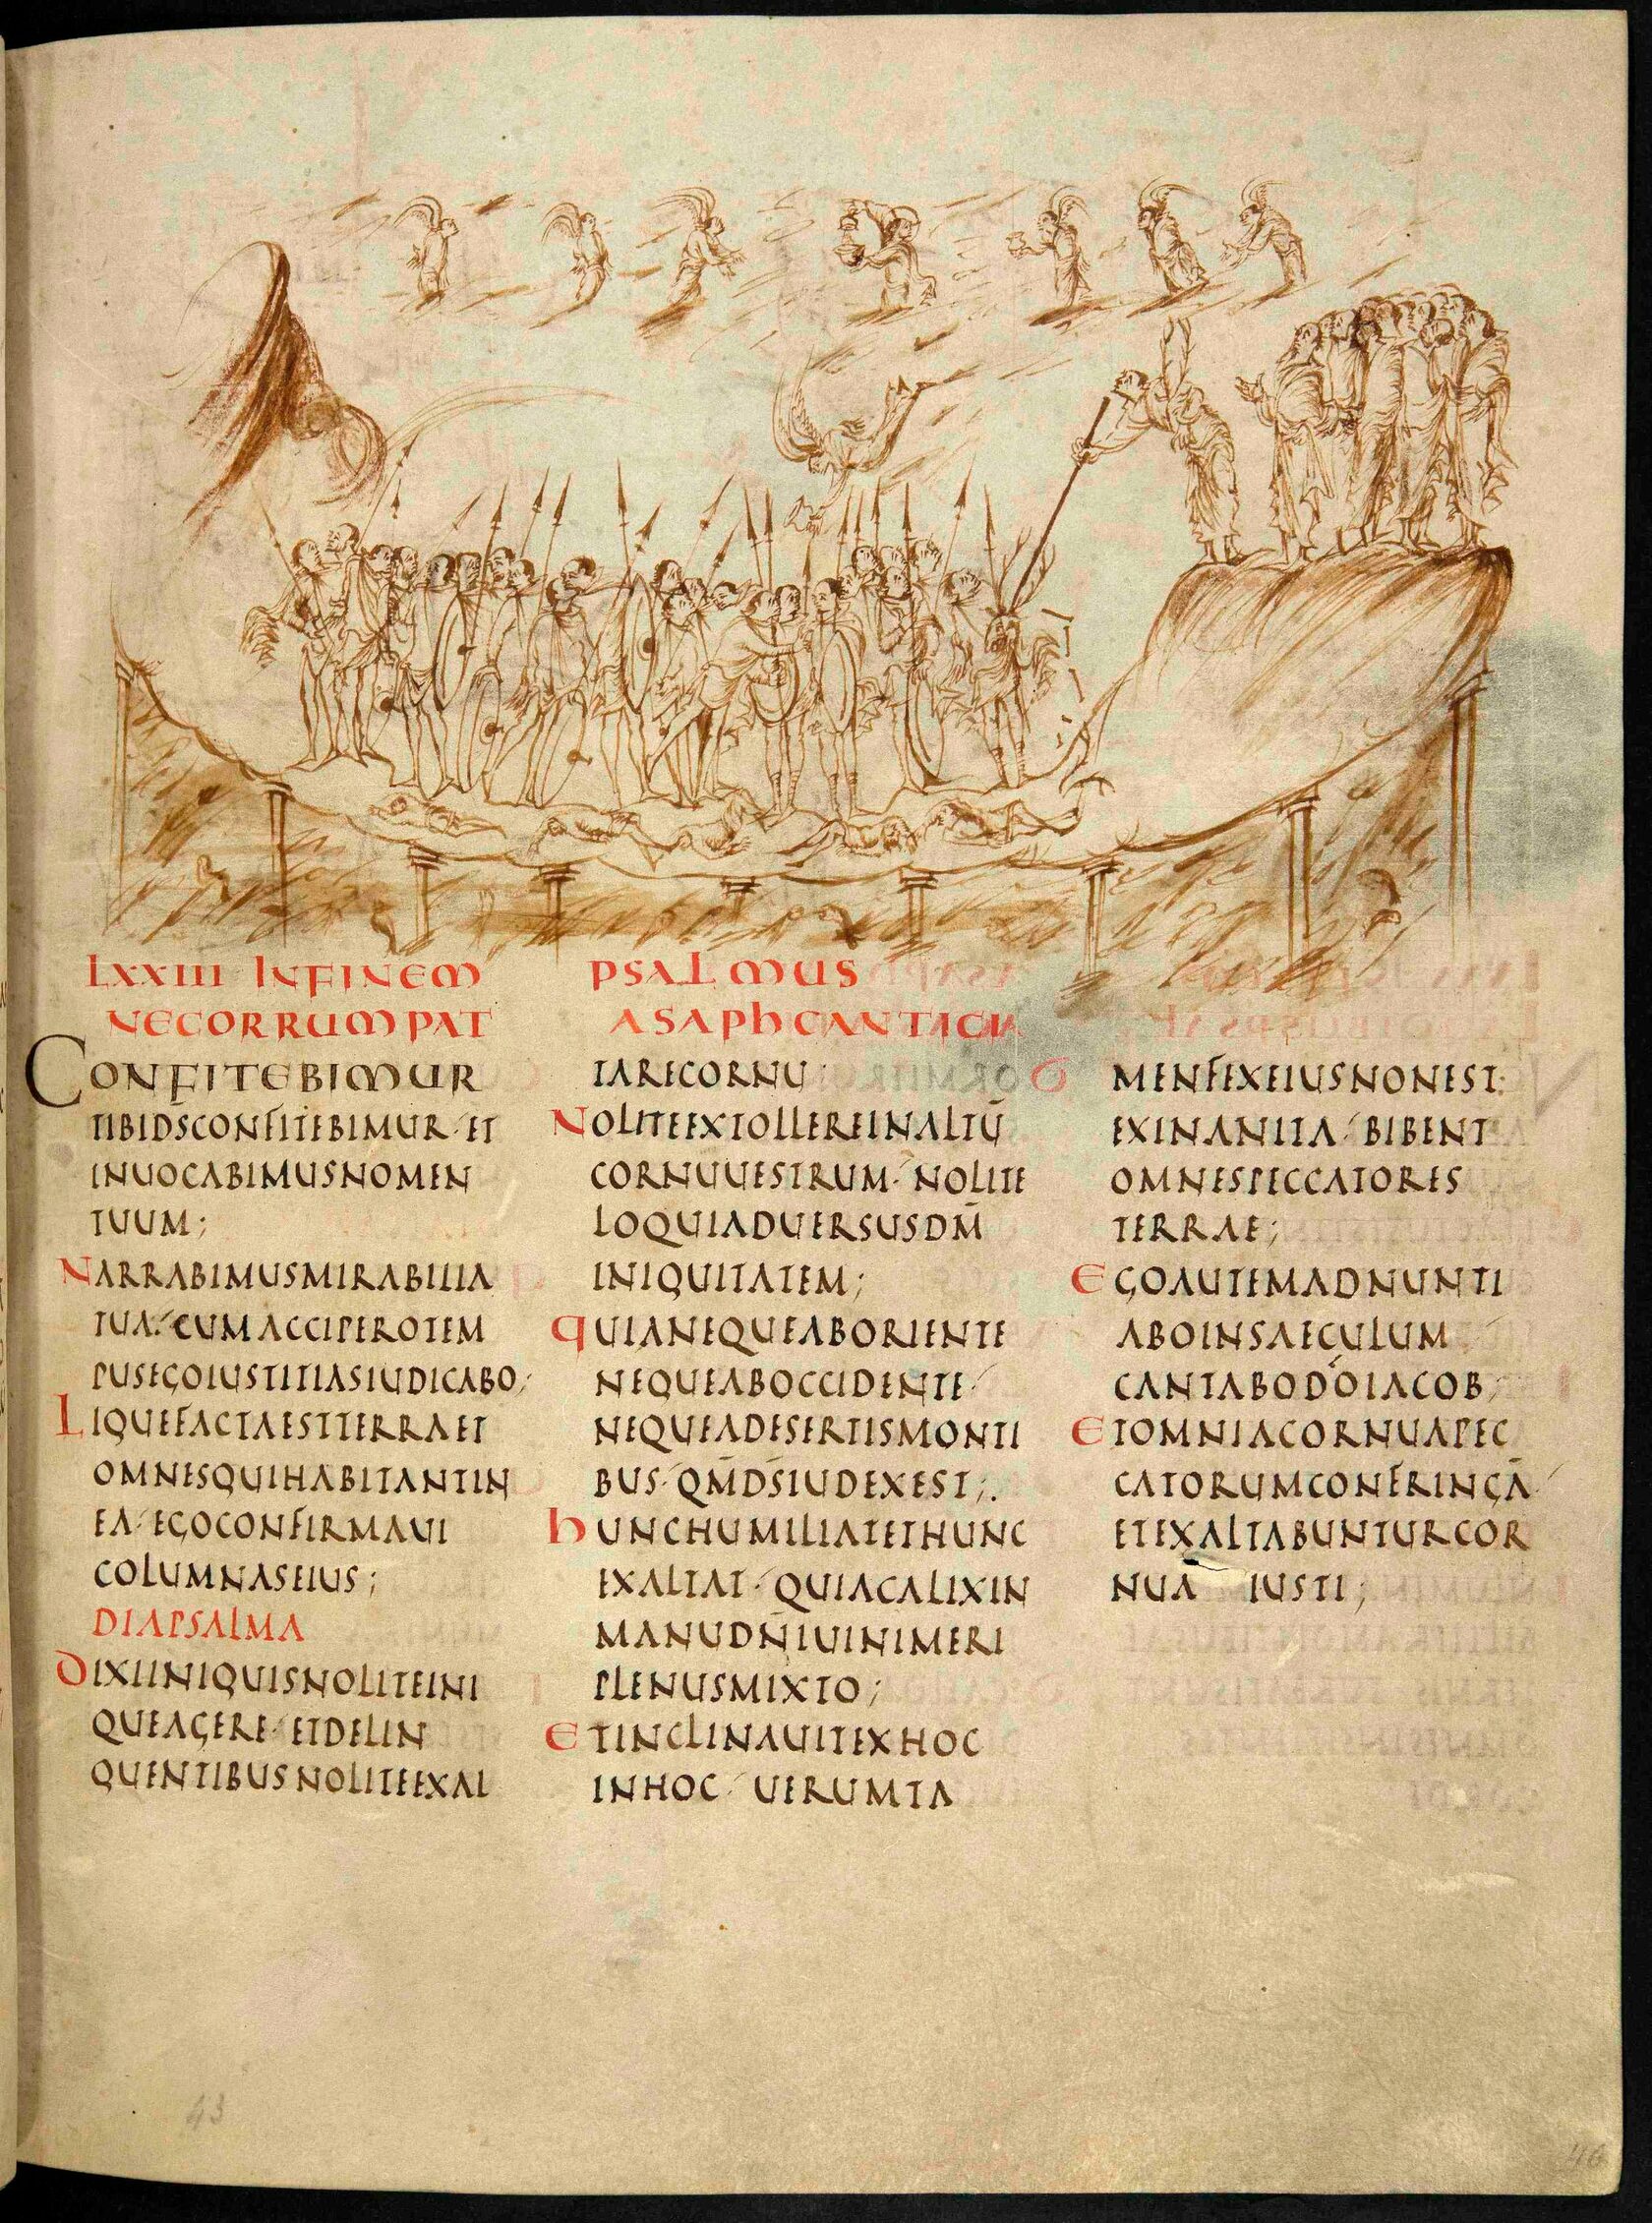 LXXIII INFINEM PSALMUS
NECORRUMPAT ASAPHCANTICI
CONFITEBIMUR
TIBIDS̄CONFITEBIMUR· ET
INUOCABIMUSNOMEN
TUUM;
NARRABIMUSMIRABILIA
TUA· CUMACCIPEROTEM
PUSEGOIUSTITIASIUDICABO;
LIQUEFACTAESTTERRAET
OMNESQUIHABITANTIN
EA· EGOCONFIRMAUI
COLUMNASEIUS;
DIAPSALMA
DIXIINIQUISNOLITEINI
QUEAGERE· ETDELIN
QUENTIBUSNOLITEEXAL
TARECORNU:
NOLITEEXTOLLEREINALTŪ
CORNUUESTRUM· NOLITE
LOQUIADUERSUSDM̄
INIQUITATEM;
QUIANEQUEABORIENTE
NEQUEABOCCIDENTE·
NEQUEADESERTISMONTI
BUS· QM̄DS̄IUDEXEST;.
HUNCHUMILIATETHUNC
EXALTAT· QUIACALIXIN
MANUDN̄IUINIMERI
PLENUSMIXTO;
ETINCLINAUITEXHOC
INHOC· UERUMTA
MENFEXEIUSNONEST·
EXINANITA· BIBENT
OMNESPECCATORES
TERRAE;
EGOAUTEMADNUNTI
ABOINSAECULUM
CANTABODŌIACOB;
ETOMNIACORNUAPEC
CATORUMCONFRINGĀ·
ETEXALTABUNTURCOR
NUA IUSTI;
43